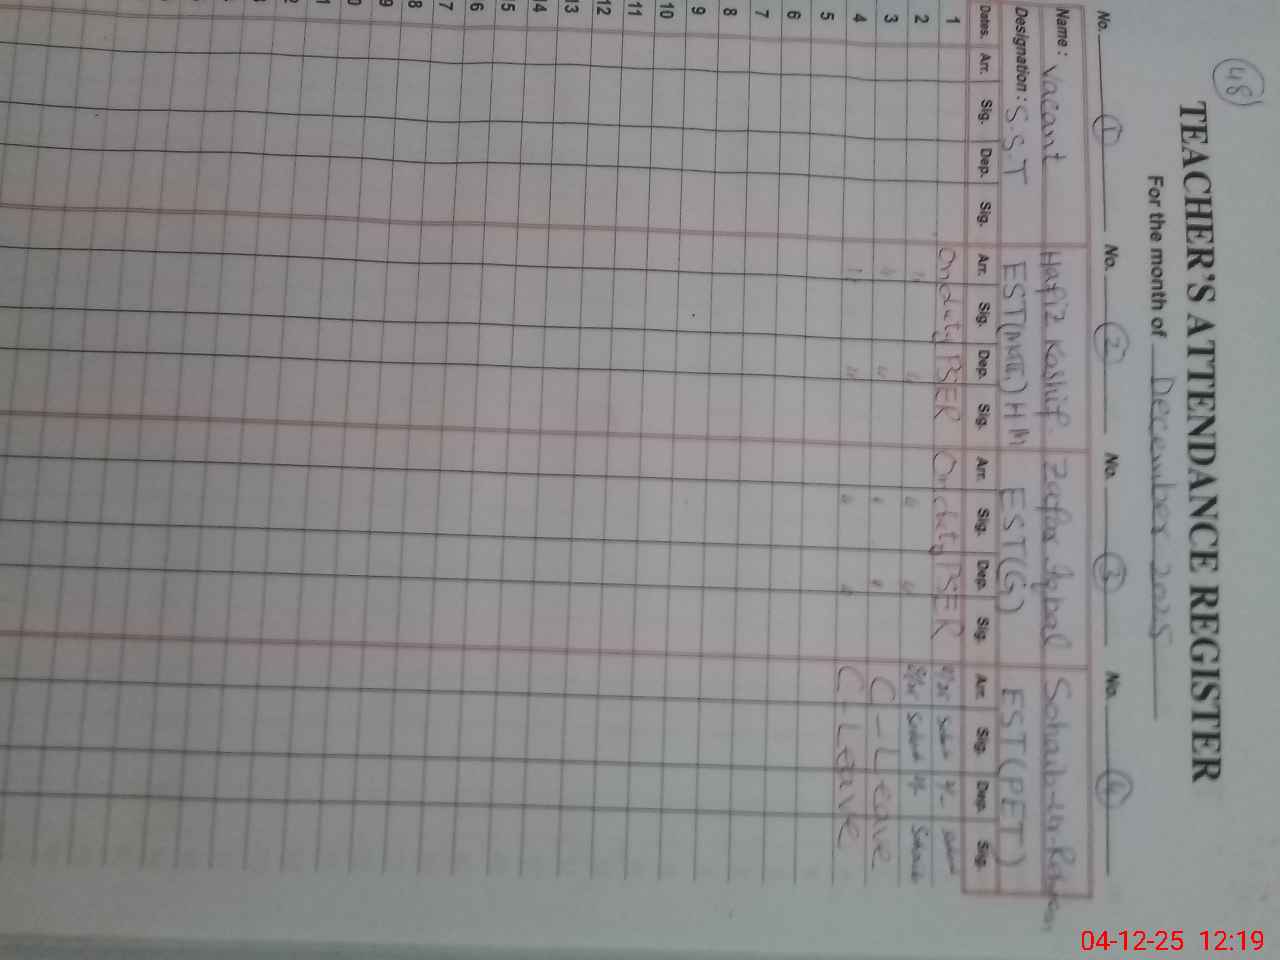 48
TEACHER'S ATTENDANCE REGISTER
For the month of December 2025
No. 1 No. 2 No. 3 No. 4
Name: Vacant Hafiz Kashif. Zafar Iqbal Sohaib-ur-Rehman
Designation: S.S.T EST(Arabic) HM EST(G) EST(PET)
Dates. Arr. Sig. Dep. Sig. Arr. Sig. Dep. Sig. Arr. Sig. Dep. Sig. Arr. Sig. Dep. Sig.
1 On duty PSER On duty PSER
2 " " " "
3 " " " " C-Leave
4 " " " " C-Leave
5
6
7
8
9
10
11
12
13
14
15
16
17
04-12-25 12:19